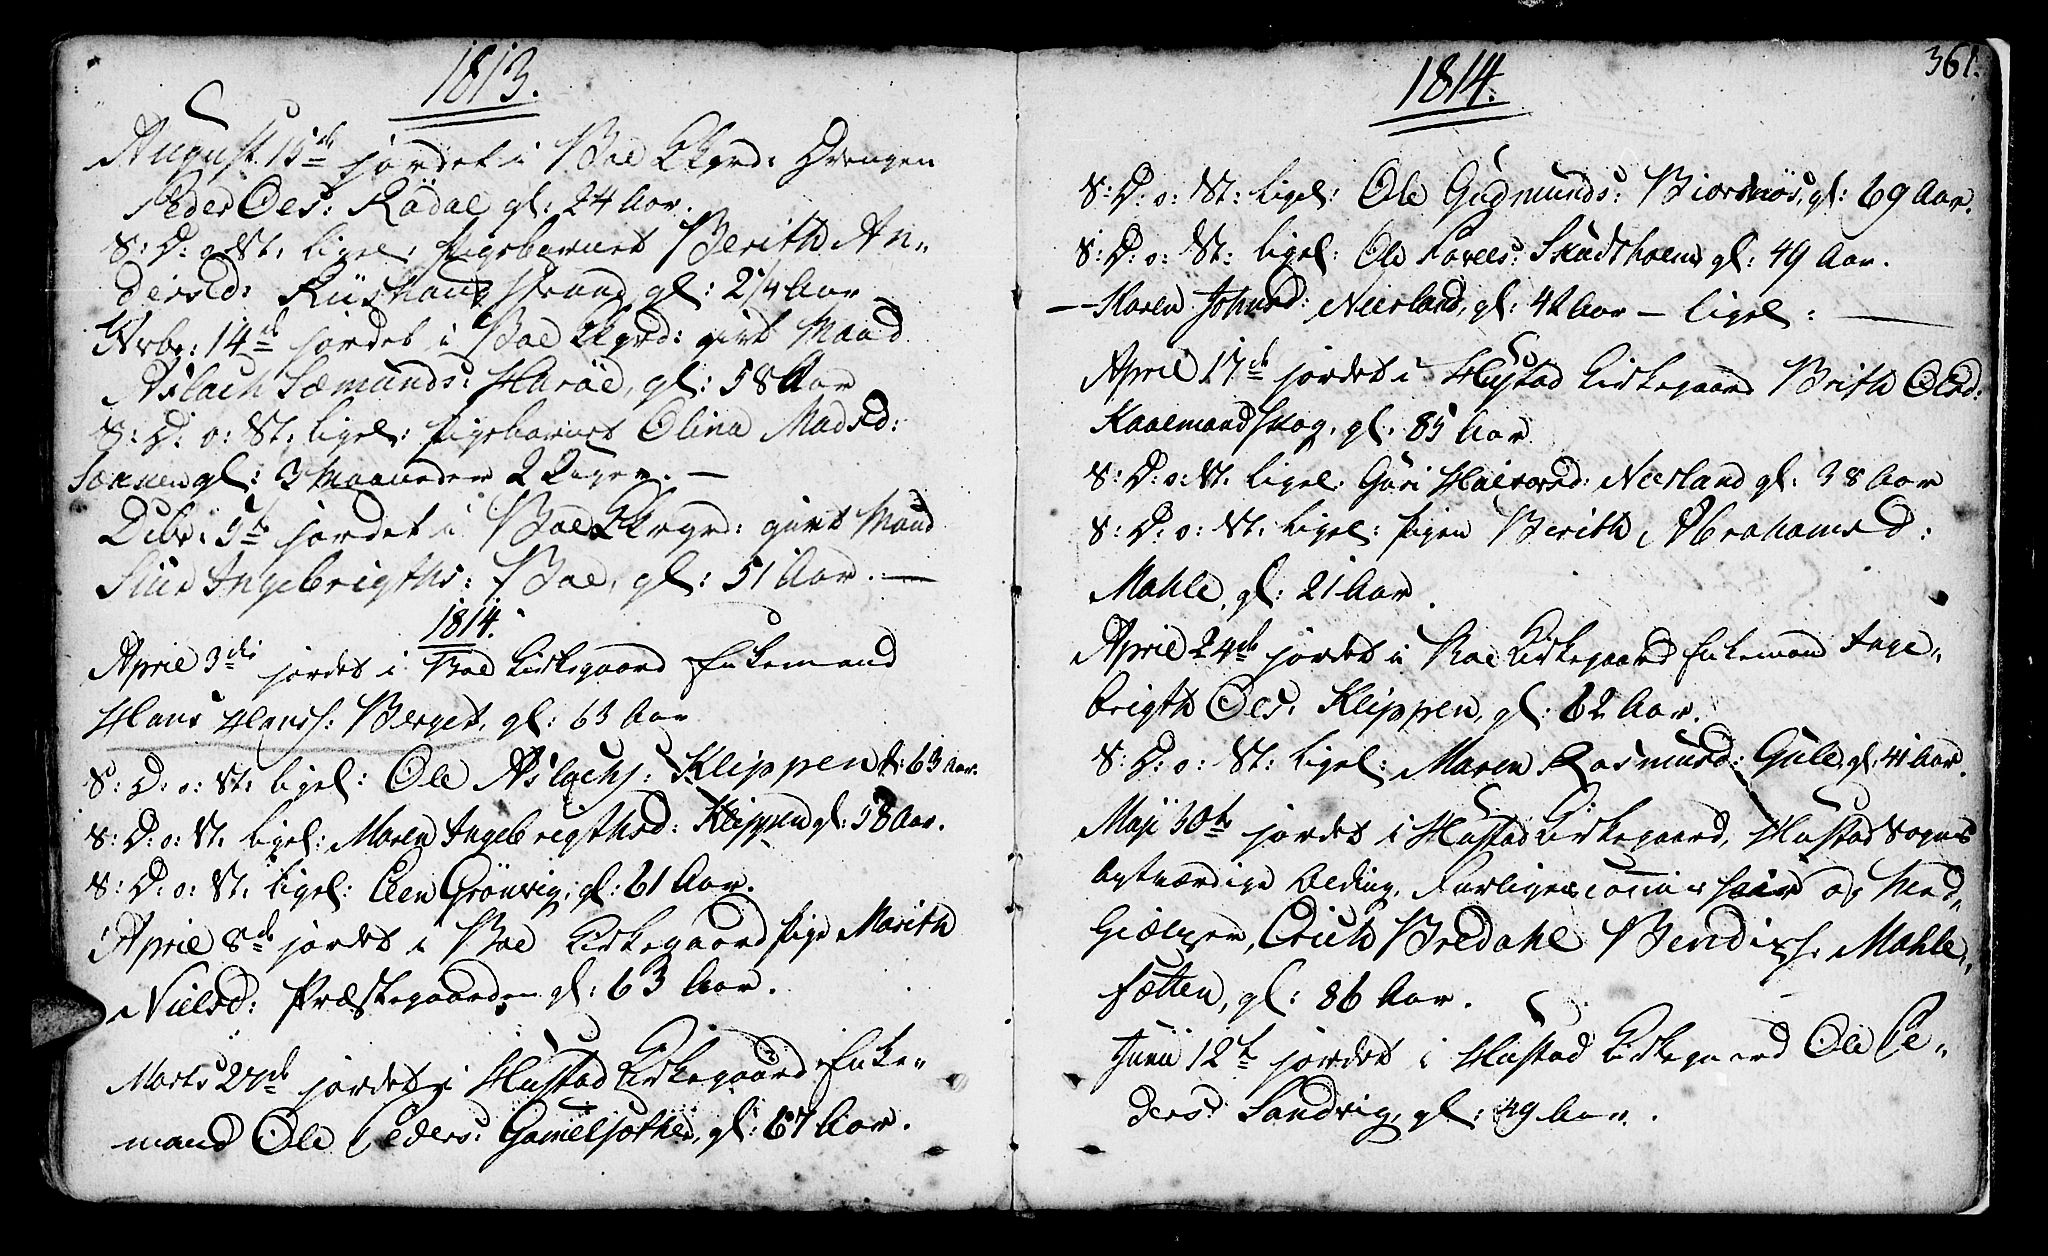 1813.
August 15de jordet i Boe Kkgrd: Drengen
Peder Oles: Rödal, gl: 24 Aar.
S: D: o: St: ligel: Pigebarnet Berith An-
dersd: gl: 2 1/4 Aar
Nvbr: 14de jordet i Boe Kkgrd: gift Mand
Aslach Sæmunds: Harøe, gl: 58 Aar
S: D: o: St: ligel: Pigebarnet Olina Madsd:
gl: 3 Maaneder 2 Uger. —
Debr: 5te jordet i Boe Kkrgrd: givt Mand
Siur Ingebrigths: Boe, gl: 51 Aar. —
1814.
April 3die jordet i Boe Kirkegaard Enkemand
Hans Hanss: Berget, gl: 63 Aar
S: D: o: St: ligel: Ole Aslachs: Klippen gl: 63 Aar.
S: D: o: St. ligel: Maren Ingebrigthsd: Klippen gl: 58 Aar.
S: D: o: St. ligel: Elen Grönvig, gl: 61 Aar.
April 8de jordet i Boe Kirkegaard Pige Marith
Nielsd: Præstegaarden gl: 63 Aar.
Marts 27de jordet i Hustad Kirkegaard Enke-
mand Ole Peders: Gamelsæther, gl: 67 Aar.
1814.
361.
S: D: o: St: ligel: Ole Gudmunds: Biørnøs, gl: 69 Aar.
S: D: o: St: ligel: Ole Povels: Skudtholm gl: 49 Aar.
— Maren Johnsd: Neerland, gl: 42 Aar — ligel: —
April 17de jordet i Hustad Kirkegaard Brith Olsd:
Kaalmandskog, gl: 85 Aar
S: D: o: St. ligel: Guri Halvorsd: Neerland gl: 38 Aar
S: D: o: St: ligel: Pigen Berith Abrahamsd:
Mahle, gl: 21 Aar.
April 24de jordet i Boe Kirkegaard Enkemand Inge-
brigth Oles: Klippen, gl: 62 Aar.
S: D: o: St: ligel: Maren Rasmusd: Gule, gl: 41 Aar.
Maji 30te jordet i Hustad Kirkegaard, Hustad Sogns
agtværdige Olding, Forligelsecommissair og Med-
Hielper, Erich Bredahl Bendixs: Mahle-
fætten, gl: 86 Aar.
Junii 12te jordet i Hustad Kirkegaard Ole Pe-
ders: Sandvig, gl: 49 Aar.